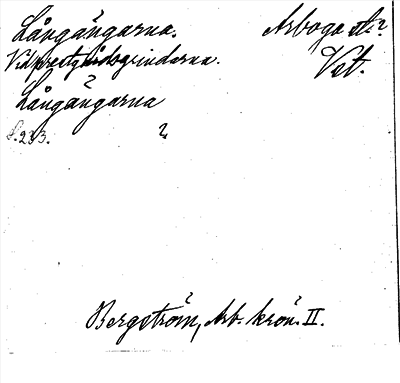 Långängarna. Arboga st.?
Vid prestgårdsgrindarna. Vet.
Långängarna
S. 233. ?
Bergström, Arb. krön. II.